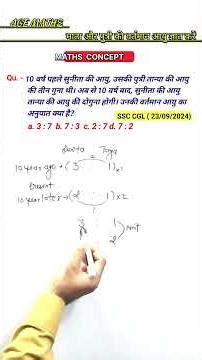 AGE MATHS
माता और पुत्री की वर्तमान आयु ज्ञात करें
MATHS CONCEPT
Qu. - 10 वर्ष पहले सुनीता की आयु, उसकी पुत्री तान्या की आयु
की तीन गुना थी। अब से 10 वर्ष बाद, सुनीता की आयु
तान्या की आयु की दोगुना होगी। उनकी वर्तमान आयु का
अनुपात क्या है?
SSC CGL ( 23/09/2024)
a. 3 : 7 b. 7 : 3 c. 2 : 7 d. 7 : 2
10 year ago → (3 1)×1
Present
10 year later → (2 1)×2
3 1
2